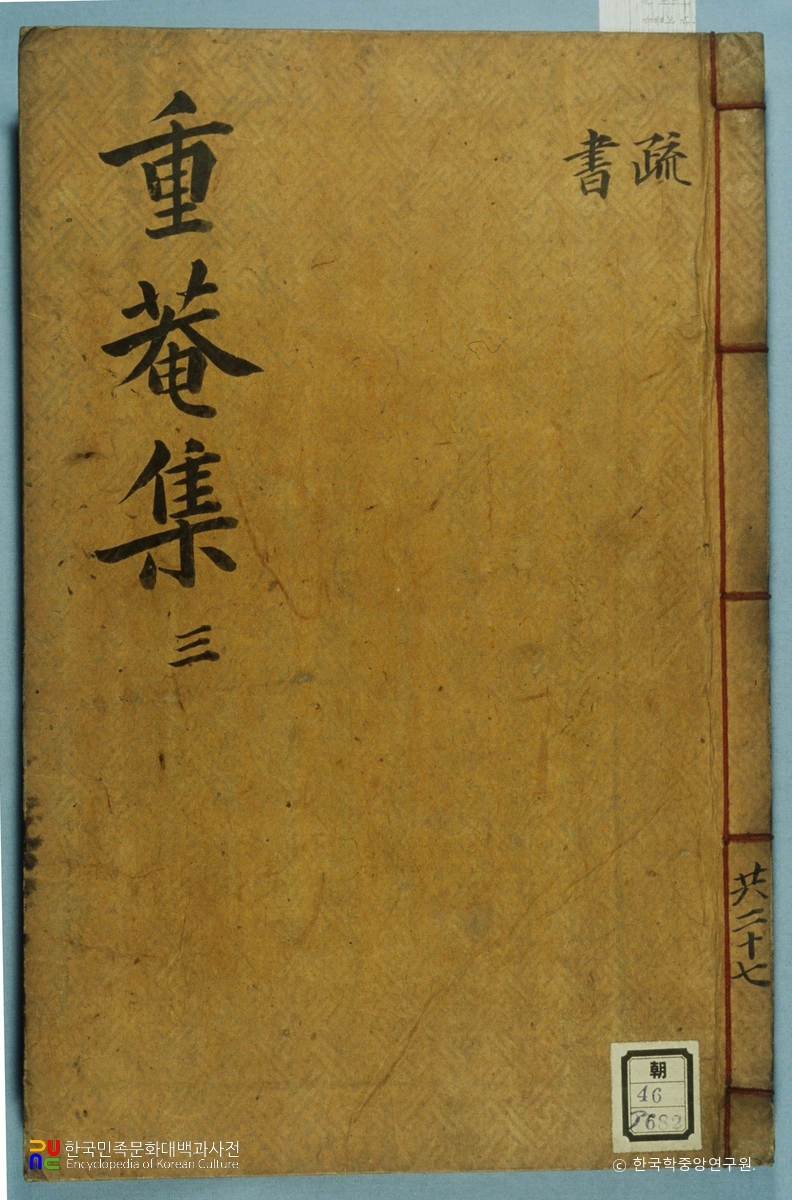 重菴集 三
疏
書
共二十七
朝
46
한국민족문화대백과사전
Encyclopedia of Korean Culture
© 한국학중앙연구원.